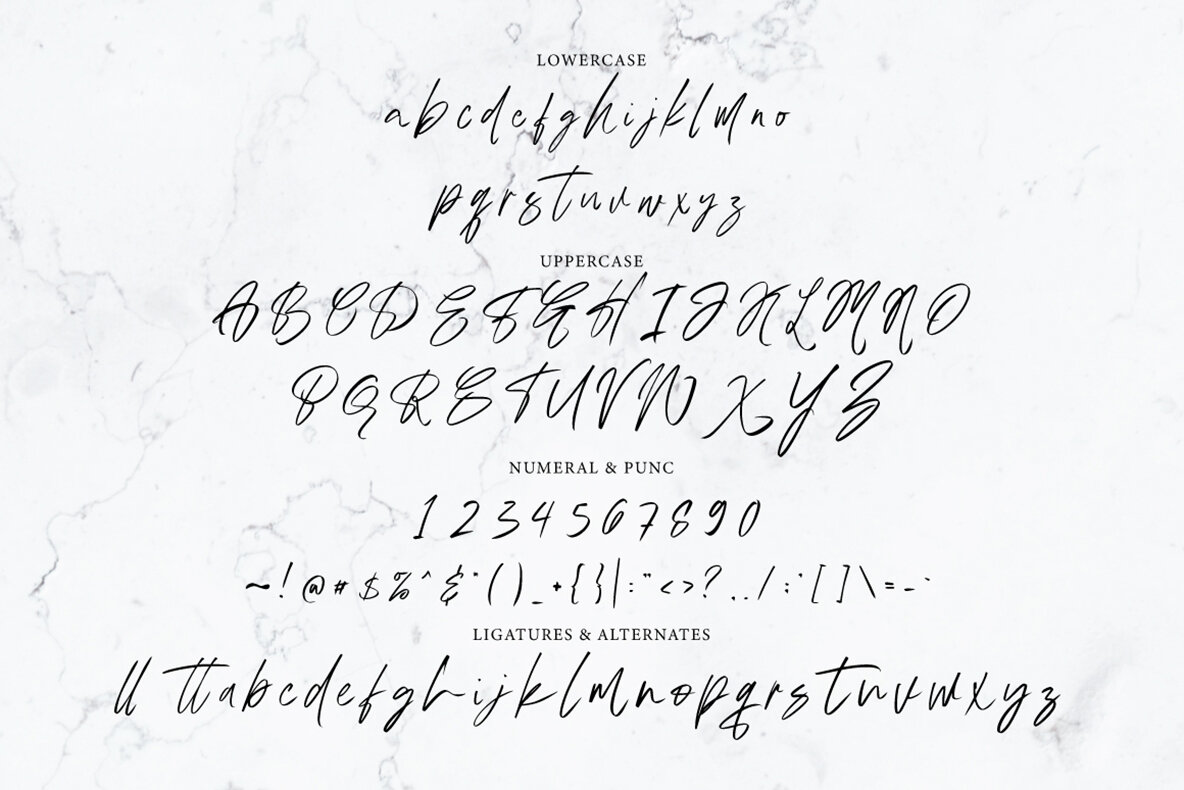 LOWERCASE
abcdefghijklmno
pqrstuvwxyz
UPPERCASE
ABCDEFGHIJKLMNO
PQRSTUVWXYZ
NUMERAL & PUNC
1234567890
~!@#$%^&*()_+{}|:"<>?,./;'[]\=-`
LIGATURES & ALTERNATES
ll ttabcdefghijklmnopqrstuvwxyz